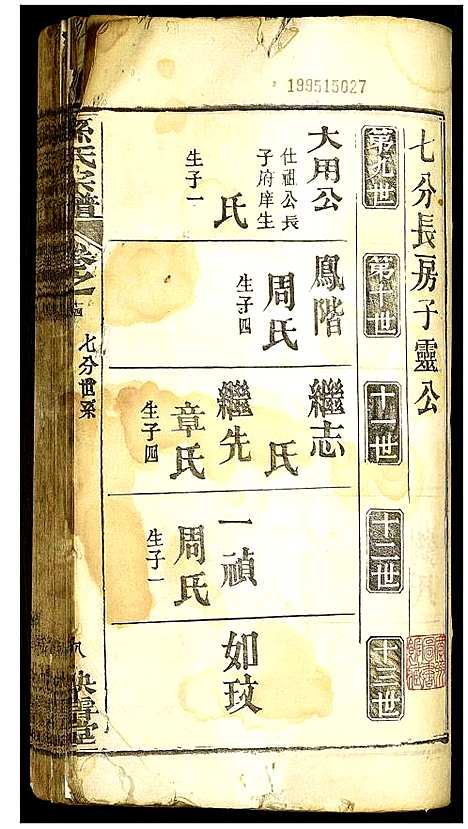 199515027
七分長房子靈公
第九世
第十世
十一世
十二世
十三世
大用公
仕祖公長
子府庠生
氏
生子一
鳳階
周氏
生子四
繼志
氏
繼先
章氏
生子四
一禎
周氏
生子一
如玟
孫氏宗譜
卷之
七分世系
映雪堂